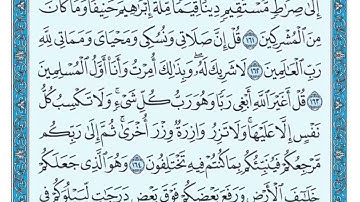 إِلَىٰ صِرَٰطٍ مُّسْتَقِيمٍ دِينًا قِيَمًا مِّلَّةَ إِبْرَٰهِيمَ حَنِيفًا وَمَا كَانَ
مِنَ ٱلْمُشْرِكِينَ ١٦١ قُلْ إِنَّ صَلَاتِى وَنُسُكِى وَمَحْيَاىَ وَمَمَاتِى لِلَّهِ
رَبِّ ٱلْعَٰلَمِينَ ١٦٢ لَا شَرِيكَ لَهُۥ وَبِذَٰلِكَ أُمِرْتُ وَأَنَا۠ أَوَّلُ ٱلْمُسْلِمِينَ
١٦٣ قُلْ أَغَيْرَ ٱللَّهِ أَبْغِى رَبًّا وَهُوَ رَبُّ كُلِّ شَىْءٍ وَلَا تَكْسِبُ كُلُّ
نَفْسٍ إِلَّا عَلَيْهَا وَلَا تَزِرُ وَازِرَةٌ وِزْرَ أُخْرَىٰ ثُمَّ إِلَىٰ رَبِّكُم
مَّرْجِعُكُمْ فَيُنَبِّئُكُم بِمَا كُنتُمْ فِيهِ تَخْتَلِفُونَ ١٦٤ وَهُوَ ٱلَّذِى جَعَلَكُمْ
خَلَٰٓئِفَ ٱلْأَرْضِ وَرَفَعَ بَعْضَكُمْ فَوْقَ بَعْضٍ دَرَجَٰتٍ لِّيَبْلُوَكُمْ فِى